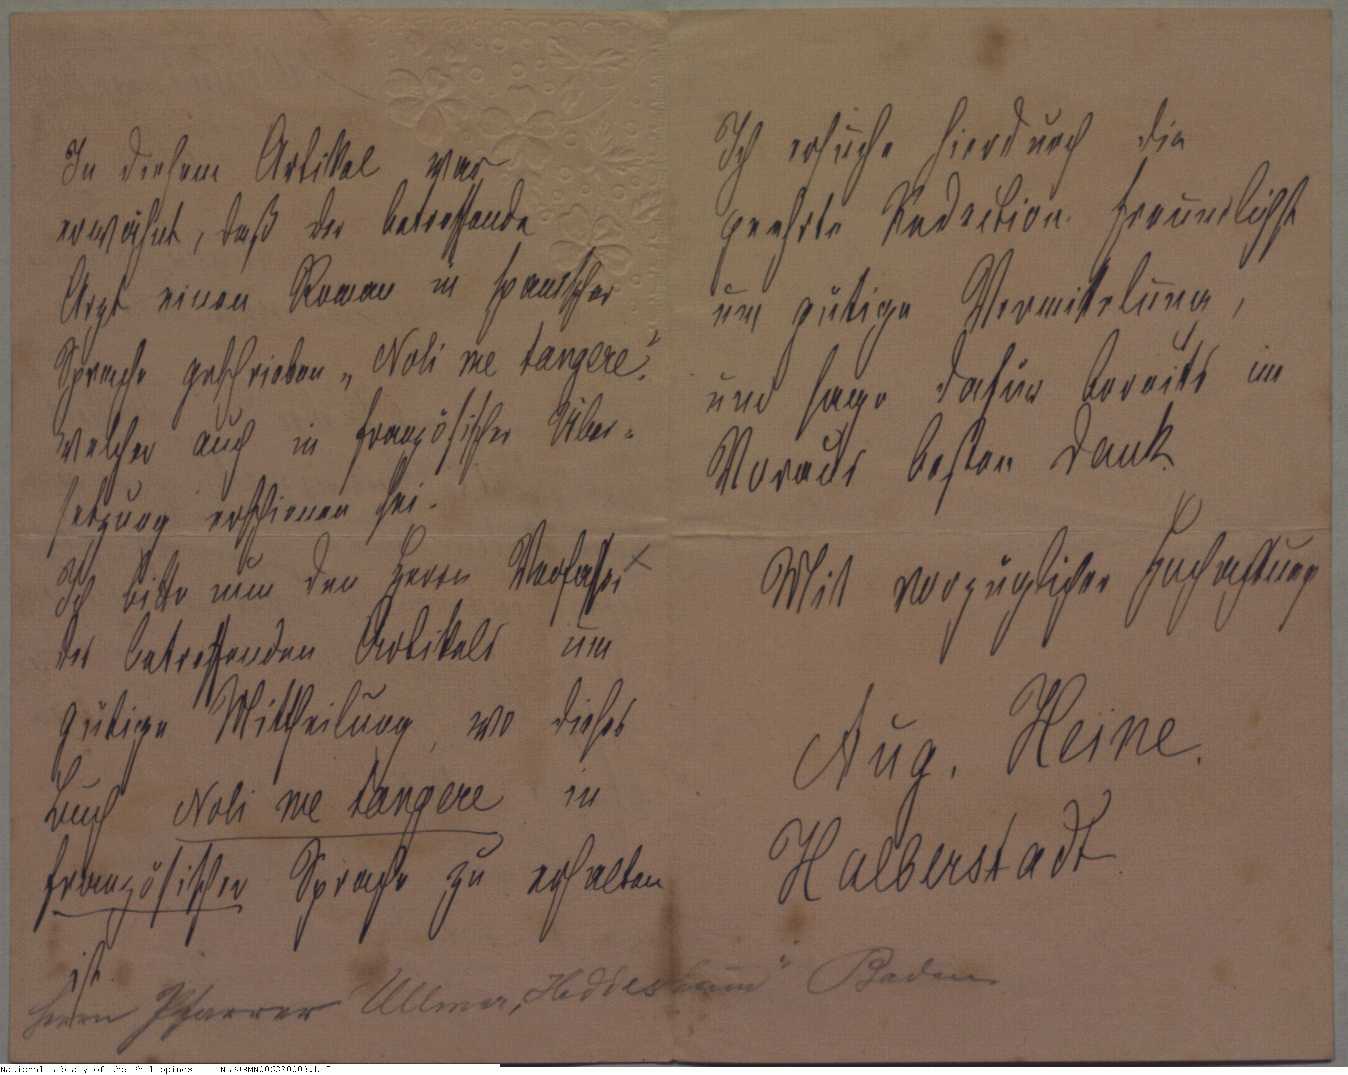 In diesem Artikel war
erwähnt, daß der betreffende
Arzt einen Roman in spanischer
Sprache geschrieben „Noli me tangere“,
welcher auch in französischer Über-
setzung erschienen sei.
Ich bitte nun den Herrn Verfasser ×
des betreffenden Artikels um
gütige Mittheilung, wo dieses
Buch Noli me tangere in
französischer Sprache zu erhalten
ist.
Herrn Pfarrer Ullmer, Heddesheim Baden
Ich ersuche hierdurch die
geehrte Redaction freundlichst
um gütige Vermittelung,
und sage dafür bereits im
Voraus besten Dank.
Mit vorzüglicher Hochachtung
Aug. Heine.
Halberstadt.
National Library of the Philippines